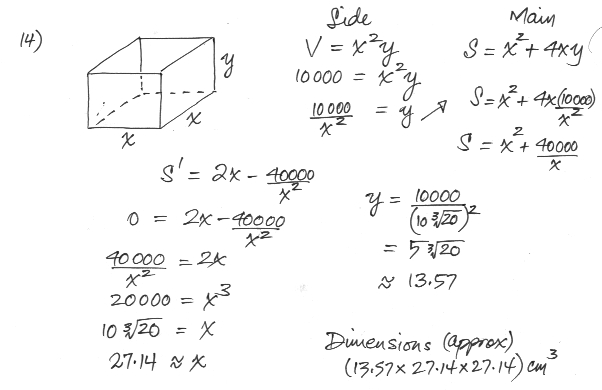 14)
y
x
x
Side
V = x²y
10000 = x²y
10000/x² = y
Main
S = x² + 4xy
S = x² + 4x(10000)/x²
S = x² + 40000/x
S' = 2x - 40000/x²
0 = 2x - 40000/x²
40000/x² = 2x
20000 = x³
10 ∛20 = x
27.14 ≈ x
y = 10000/(10 ∛20)²
= 5 ∛20
≈ 13.57
Dimensions (approx)
(13.57 x 27.14 x 27.14) cm³